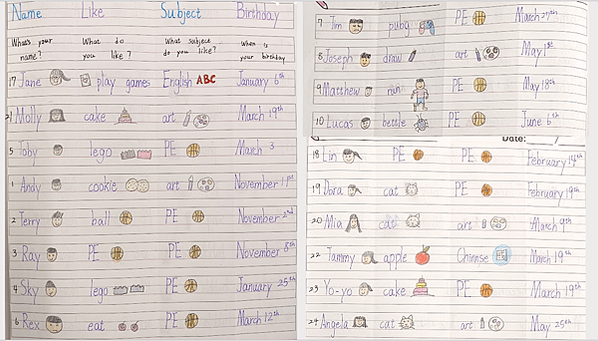 Name Like Subject Birthday
What's your name? What do you like? What subject do you like? When is your birthday
17 Jane play games English ABC January 6th
21 Molly cake art March 19th
5 Toby lego PE March 3
1 Andy cookie art November 1st
2 Terry ball PE November 2nd
3 Ray PE PE November 8th
4 Sky lego PE January 25th
6 Rex eat PE March 12th
7 Tim pubg PE March 27th
8 Joseph draw art May 1st
9 Matthew run PE May 18th
10 Lucas bettle PE June 6th
Date:
18 Lin PE PE February 14th
19 Dora cat PE February 19th
20 Mia cat art March 9th
22 Tammy apple Chinese March 19th
23 Yo-yo cake PE March 19th
24 Angela cat art May 25th